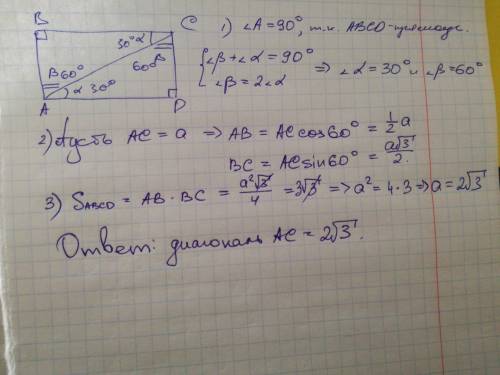 B
C
30° α
β 60°
60° β
α 30°
A
D
1) ∠A = 90°, т.к. ABCD - прямоуг.
{∠β + ∠α = 90°
{∠β = 2∠α ⇒ ∠α = 30° и ∠β = 60°
2) Пусть AC = a ⇒ AB = AC cos 60° = 1/2 a
BC = AC sin 60° = a√3/2.
3) S_ABCD = AB · BC = a²√3/4 = 3√3 ⇒ a² = 4·3 ⇒ a = 2√3
Ответ: диагональ AC = 2√3.